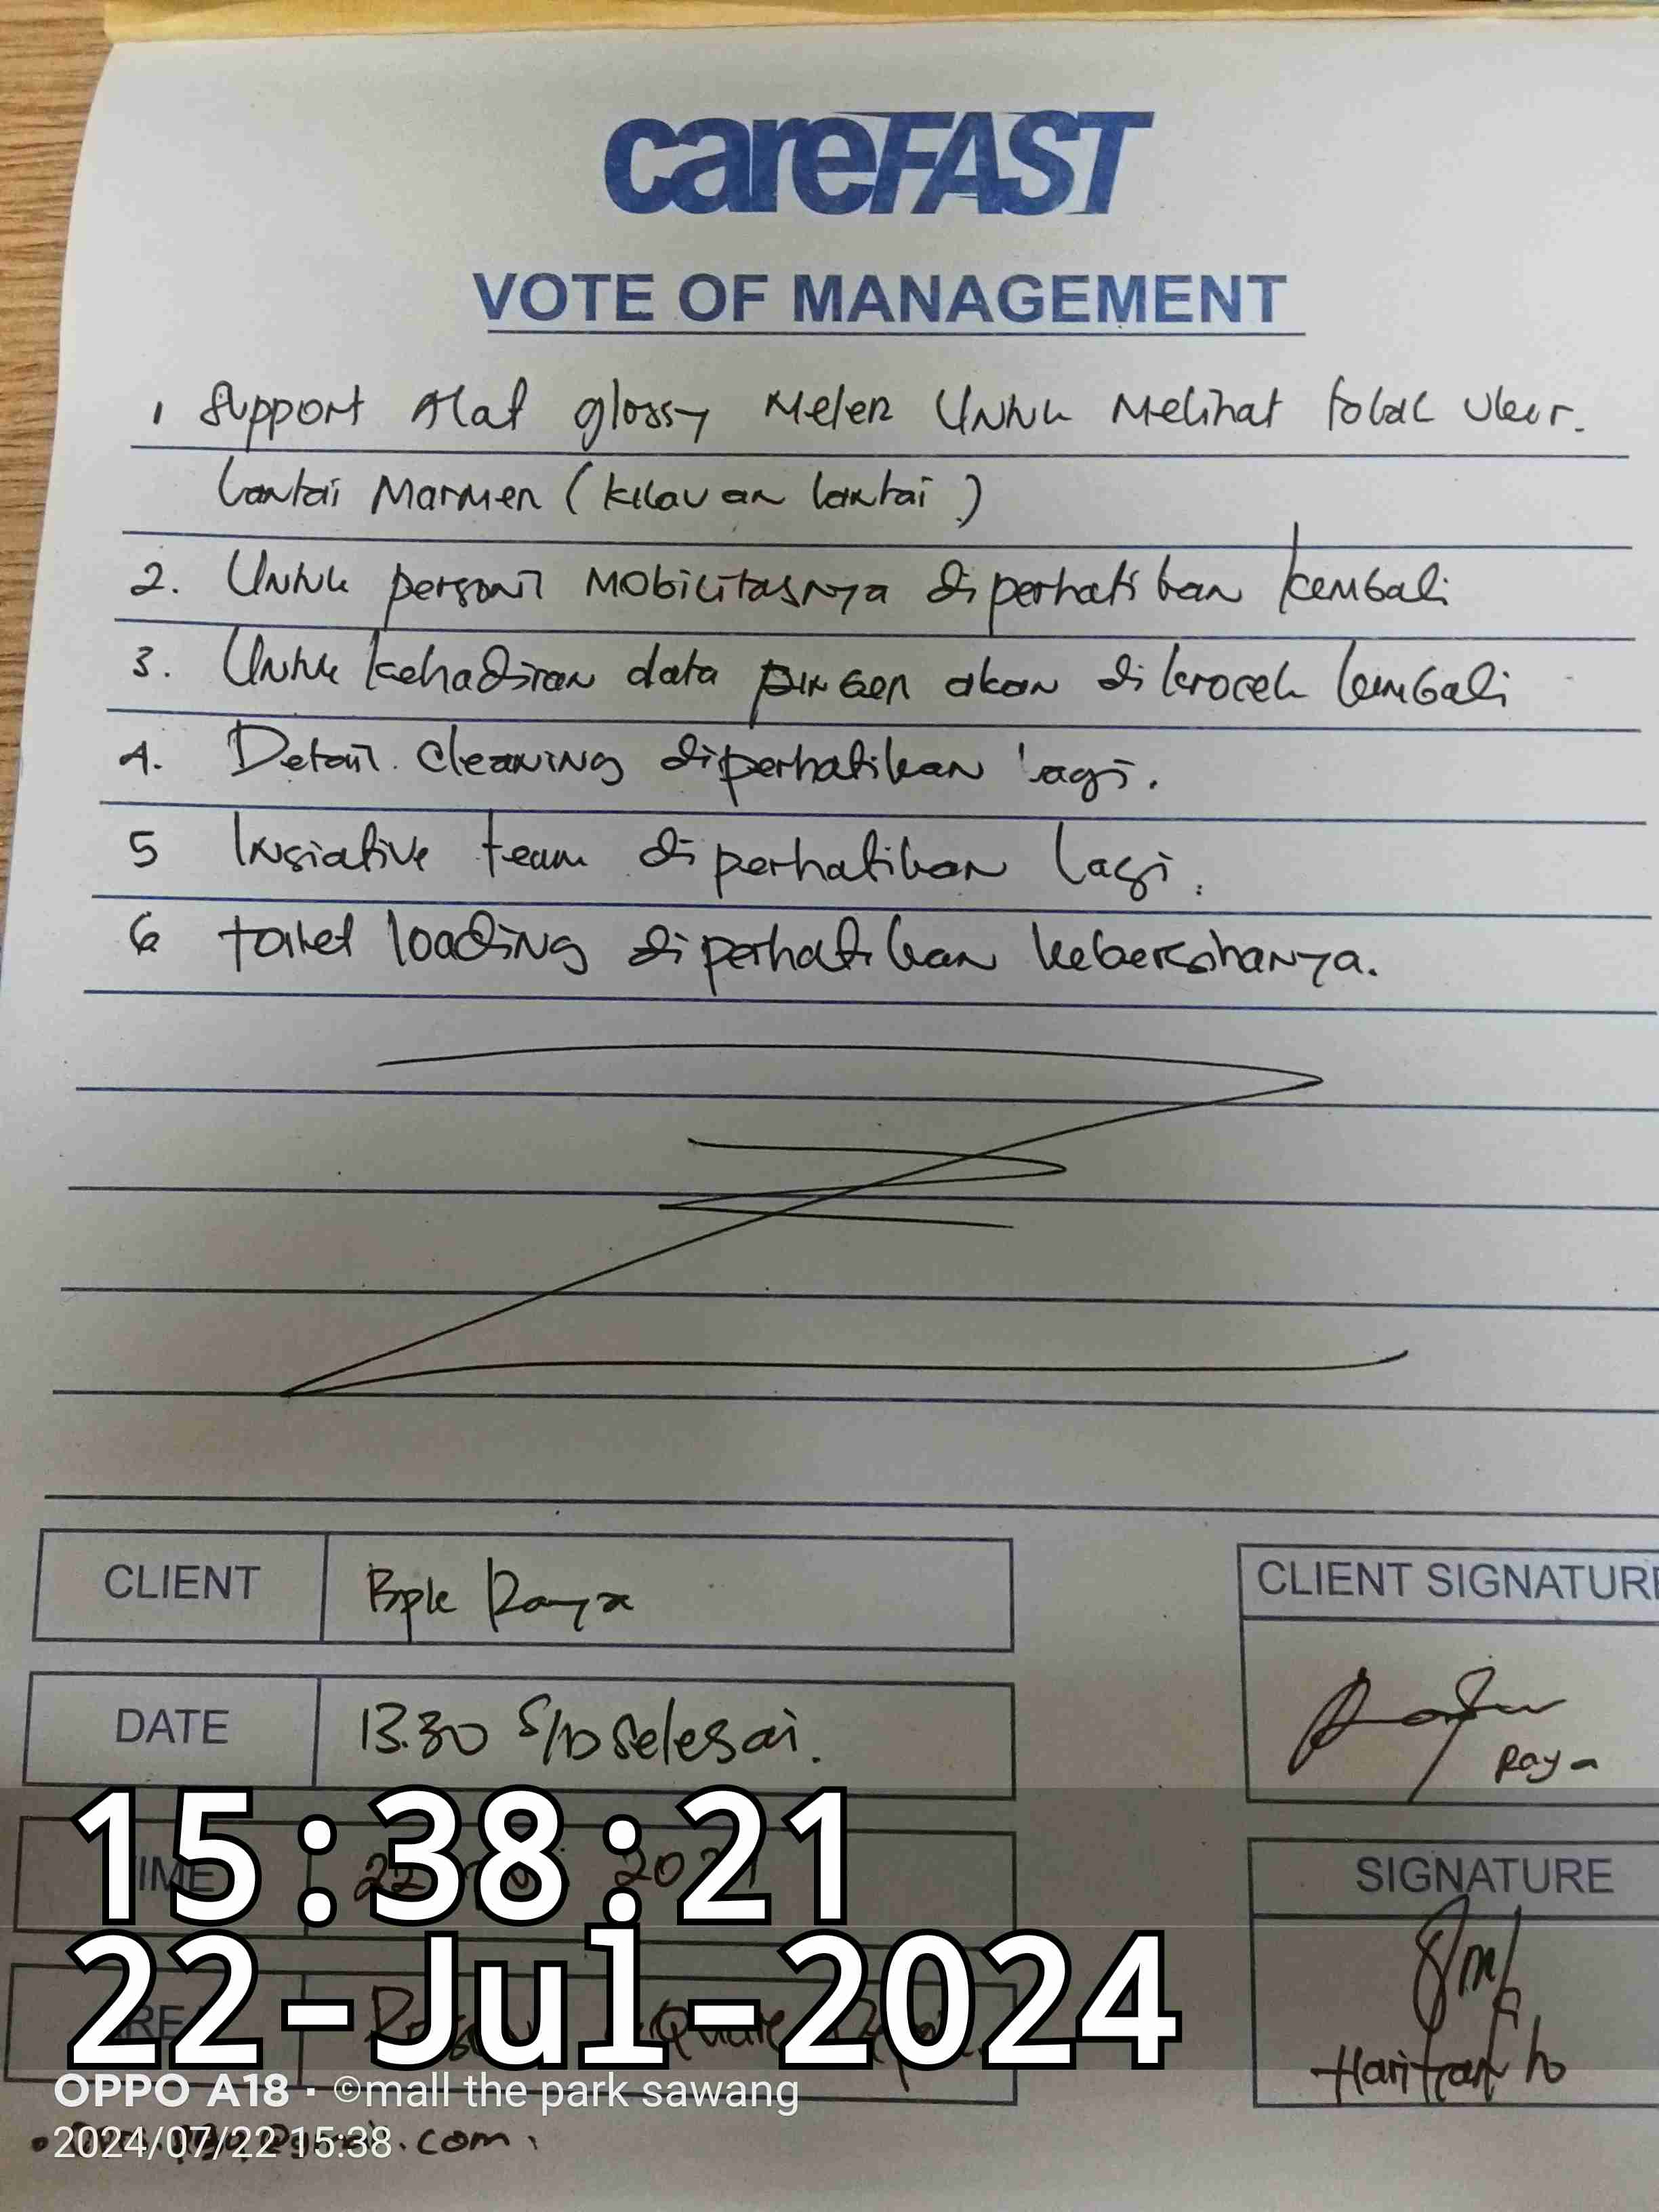 careFAST
VOTE OF MANAGEMENT
1 Support Alat glossy Meter Untuk Melihat total ukur.
Lantai Marmer (kilauan lantai)
2. Untuk personil Mobilitasnya diperhatikan kembali
3. Untuk kehadiran data finger akan dikrocek kembali
4. Detail cleaning diperhatikan lagi.
5 Insiative team diperhatikan lagi.
6 toilet loading diperhatikan kebersihanya.
CLIENT Bpk Raya
CLIENT SIGNATURE
DATE 13.30 S/D Selesai.
Raya
15:38:21
TIME 22
SIGNATURE
22-Jul-2024
Haritranto
OPPO A18 · ©mall the park sawang
2024/07/22 15:38
.com